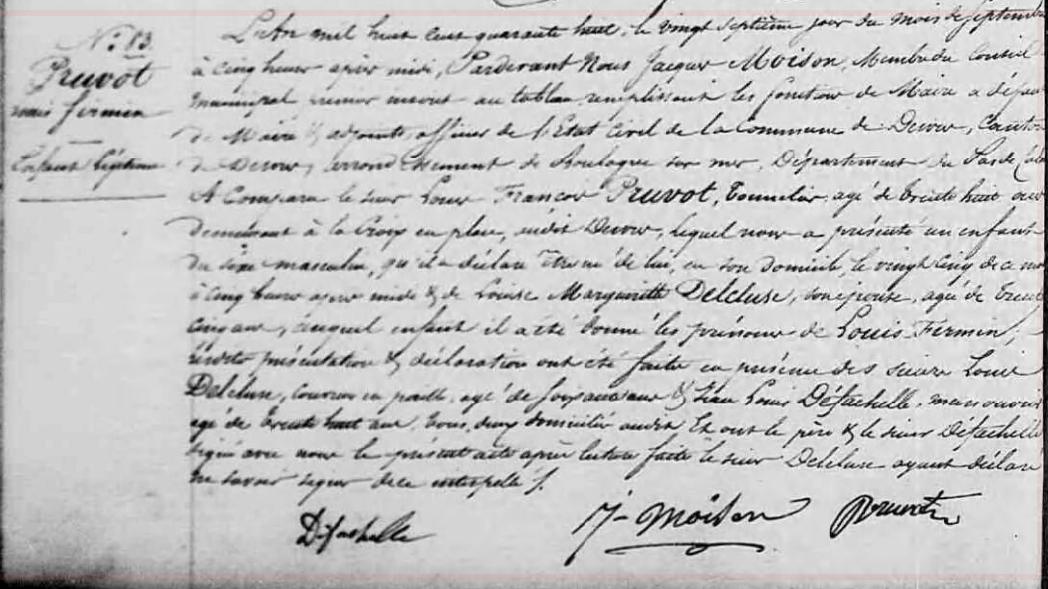 N.° 83.
Pruvôt
Louis firmin
Enfant légitime
L'An mil huit cent quarante huit, le vingt septième jour du mois de septembre
à cinq heures après midi, Pardevant Nous Jacques Moison, Membre du Conseil
municipal premier inscrit au tableau remplissant les fonctions de Maire à défaut
de Maire & adjoints, officier de l'Etat Civil de la Commune de Desvres, Canton
de Desvres, arrondissement de Boulogne sur mer, Département du Pas de Calais
A Comparu le sieur Louis François Pruvot, Tonnelier, agé de trente huit ans
demeurant à la Croix en place, audit Desvres, lequel nous a présenté un enfant
du sexe masculin, qu'il a déclaré être né de lui, en son domicile, le vingt cinq de ce mois
à cinq heures après midi & de Louise Marguerite Delcluse, son épouse, agée de trente
cinq ans, auquel enfant il a été donné les prénoms de Louis Firmin,
lesdites présentation & déclaration ont été faites en présence des sieurs Louis
Delcluse, couvreur en paille, agé de soixante ans & Jean Louis Défachelle,
agé de trente huit ans, tous deux domiciliés audit Et ont le père & le sieur Défachelle
signé avec nous le présent acte après lecture faite le sieur Delcluse ayant déclaré
ne savoir signer de ce interpellé ./.
Défachelle
J. Moison
Pruvot